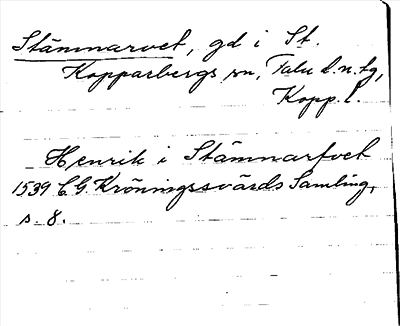 Stämnarvet, gd i St.
Kopparbergs sn, Falu d. n. tg,
Kopp. l.
Henrik i Stämnarfvet
1539 C. G. Kröningssvärds Samling,
s. 8.